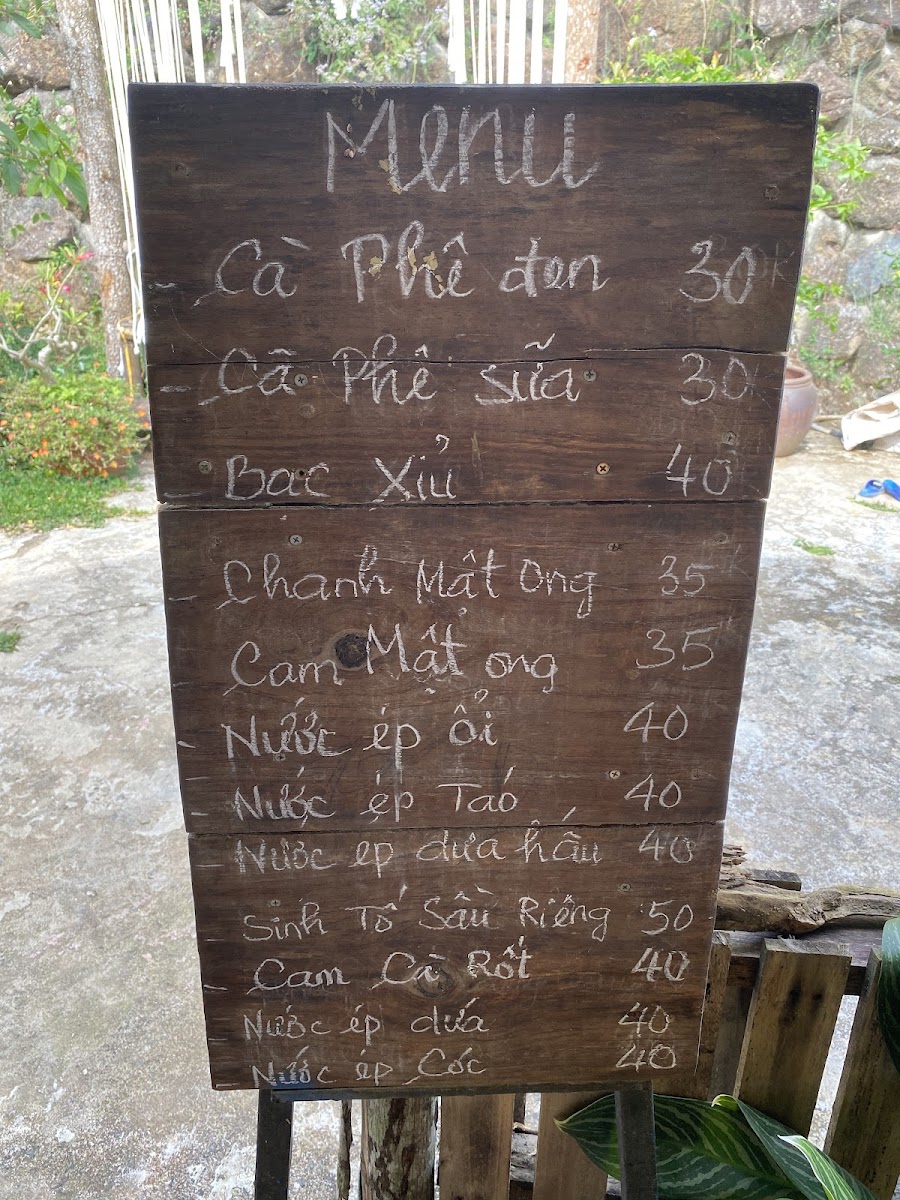 Menu
- Cà Phê đen 30k
- Cà Phê sữa 30
- Bac Xỉu 40
- Chanh Mật Ong 35k
- Cam Mật ong 35
- Nước ép ổi 40
- Nước ép Táo 40
- Nước ép dưa hấu 40
- Sinh Tố Sầu Riêng 50
- Cam Cà Rốt 40
- Nước ép dứa 40
- Nước ép Cóc 40